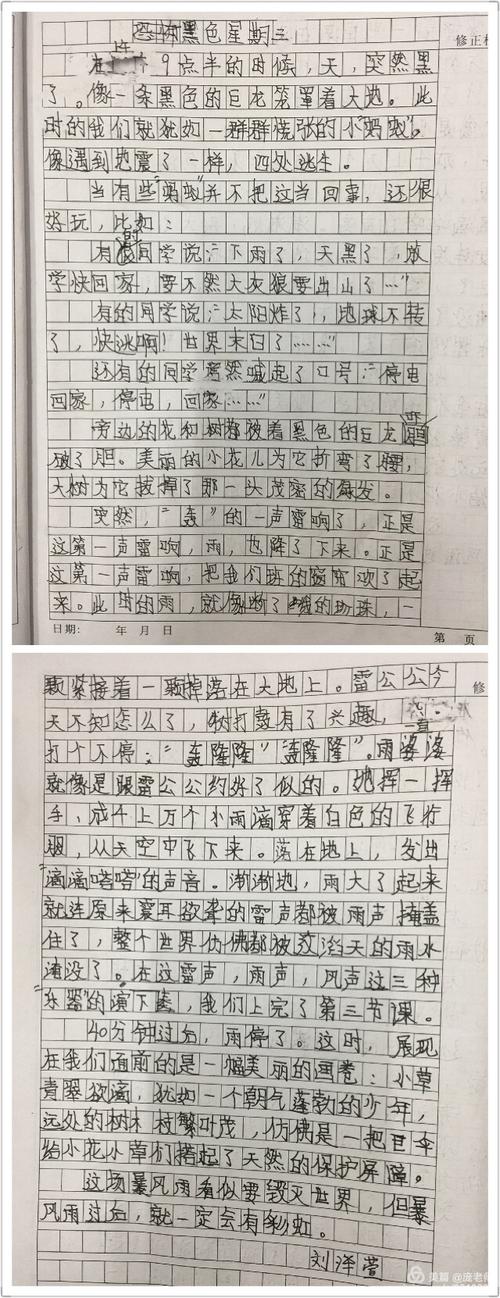 恐怖黑色星期三
修正栏
在上午9点半的时候，天，突然黑
了。像一条黑色的巨龙笼罩着大地。此
时的我们就犹如一群群慌张的小“蚂蚁”。
像遇到地震了一样，四处逃生。
当有些“蚂蚁”并不把这当回事，还很
好玩，比如：
有的同学说：“下雨了，天黑了，放
学快回家，要不然大灰狼要出山了…”
有的同学说：“太阳炸了，地球不转
了，快逃啊！世界末日了……”
还有的同学竟然喊起了口号：“停电
回家，停电，回家……”
旁边的花和树都被着黑色的巨龙吓
破了胆。美丽的小花儿为它折弯了腰，
大树为它拔掉了那一头茂密的绿发。
突然，“轰”的一声雷响了，正是
这第一声雷响，雨，也降了下来。正是
这第一声雷响，把我们班的窗帘吹了起
来。此时的雨，就像断了线的珠，一
日期： 年 月 日
第 页
颗紧接着一颗掉落在大地上。雷公公今
修
天不知怎么了，对打鼓有了兴趣，一直
打个不停：“轰隆隆”“轰隆隆”。雨婆婆
就像是跟雷公公约好了似的。她挥一挥
手，成千上万个小雨滴穿着白色的飞行
服，从天空中飞下来。落在地上，发出
“滴滴嗒嗒”的声音。渐渐地，雨大了起来
就连原来震耳欲聋的雷声都被雨声掩盖
住了，整个世界仿佛都被滔天的雨水
淹没了。在这雷声，雨声，风声这三种
“乐器”的演下奏，我们上完了第三节课。
40分钟过后，雨停了。这时，展现
在我们面前的是一幅美丽的画卷：小草
青翠欲滴，犹如一个朝气蓬勃的少年，
远处的树木枝繁叶茂，仿佛是一把巨伞
给小花小草们搭起了天然的保护屏障。
这场暴风雨看似要毁灭世界，但暴
风雨过后，就一定会有彩虹。
刘泽萱
美篇